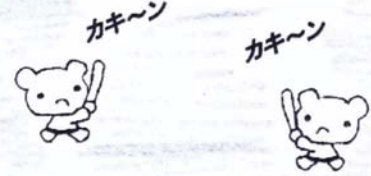 カキ〜ン
カキ〜ン